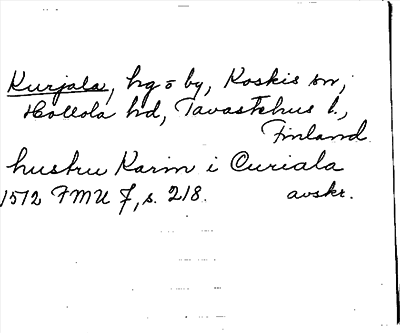 Kurjala, hg o by, Koskis sn,
Hollola hd, Tavastehus l.,
Finland.
hustru Karin i Curiala
1512 FMU 7, s. 218. avskr.